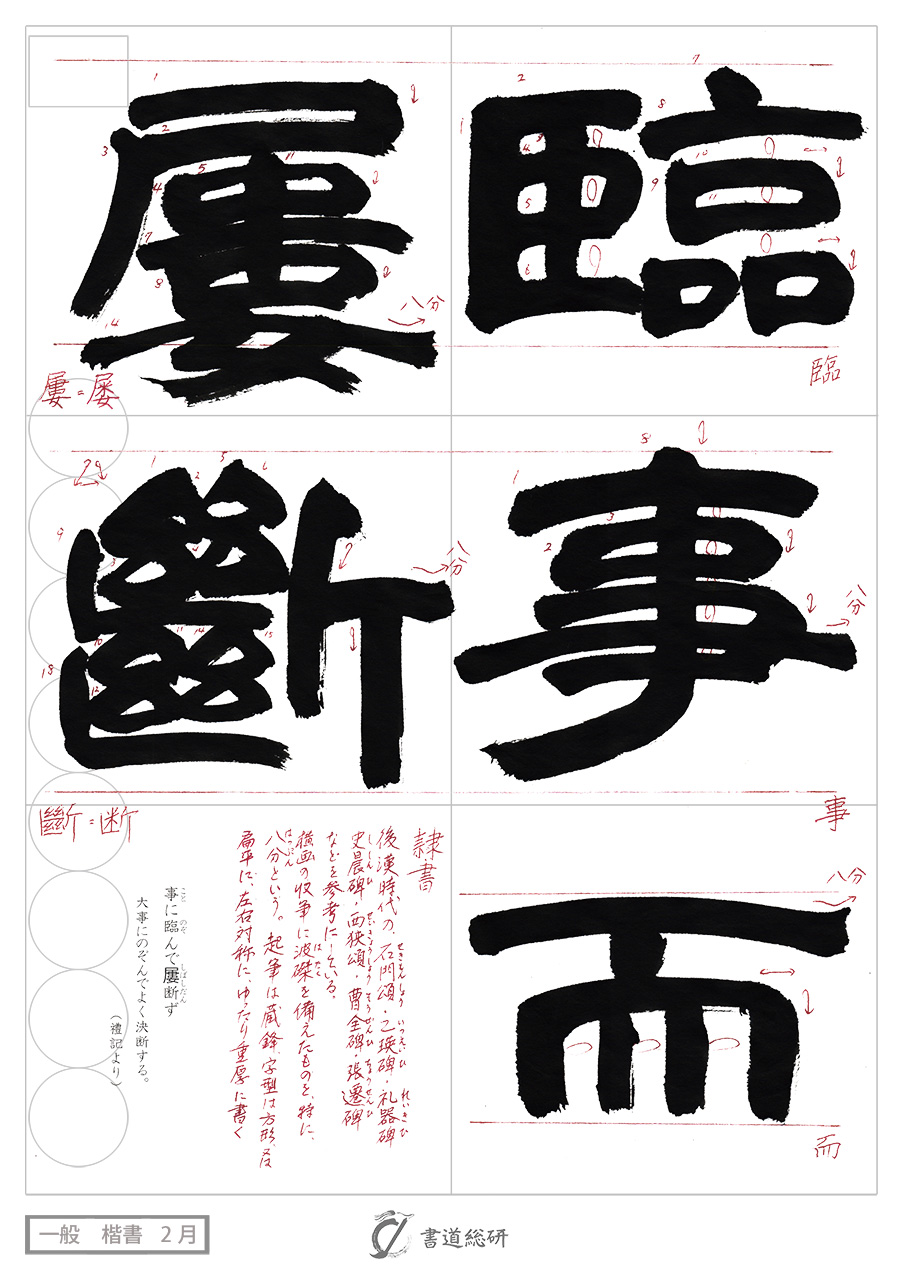 臨
事
而
屢
斷
臨
事
而
屢=屡
斷=断
八分
八分
八分
八分
隷書
後漢時代の、石門頌・乙瑛碑・礼器碑
史晨碑・西狭頌・曹全碑・張遷碑
などを参考にしている。
横画の収筆に波磔を備えたものを、特に、
八分という。起筆は蔵鋒、字型は方形、又
扁平に、左右対称に、ゆったり重厚に書く
事に臨んで屢断ず
大事にのぞんでよく決断する。
(禮記より)
一般 楷書 2月
書道総研